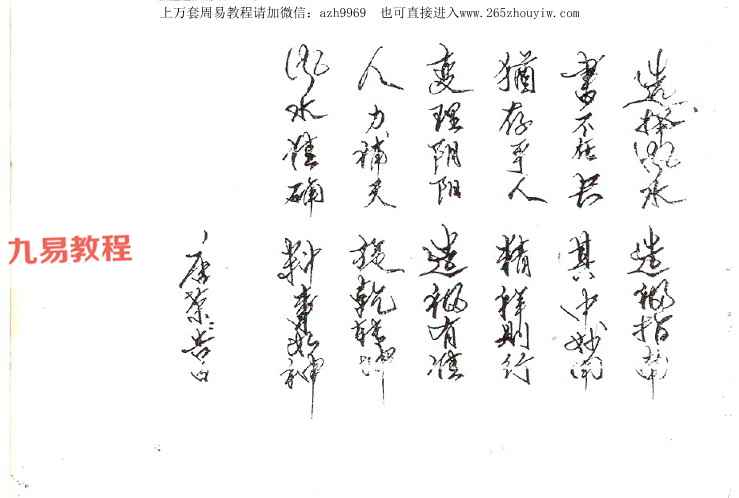 上万套周易教程请加微信：azh9969　也可直接进入www.265zhouyiw.com
选择风水 造福指南
书不在长 其中妙用
犹存乎人 精祥则行
变理阴阳 造福有准
人力补天 旋乾转坤
风水准确 料事如神
九易教程